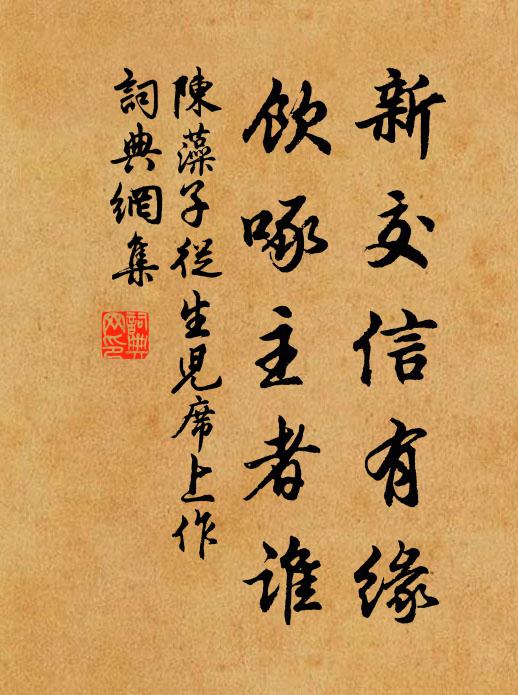 新交信有緣
飲啄主者誰
陳藻子從生兒席上作
詞典網集
詞典网印